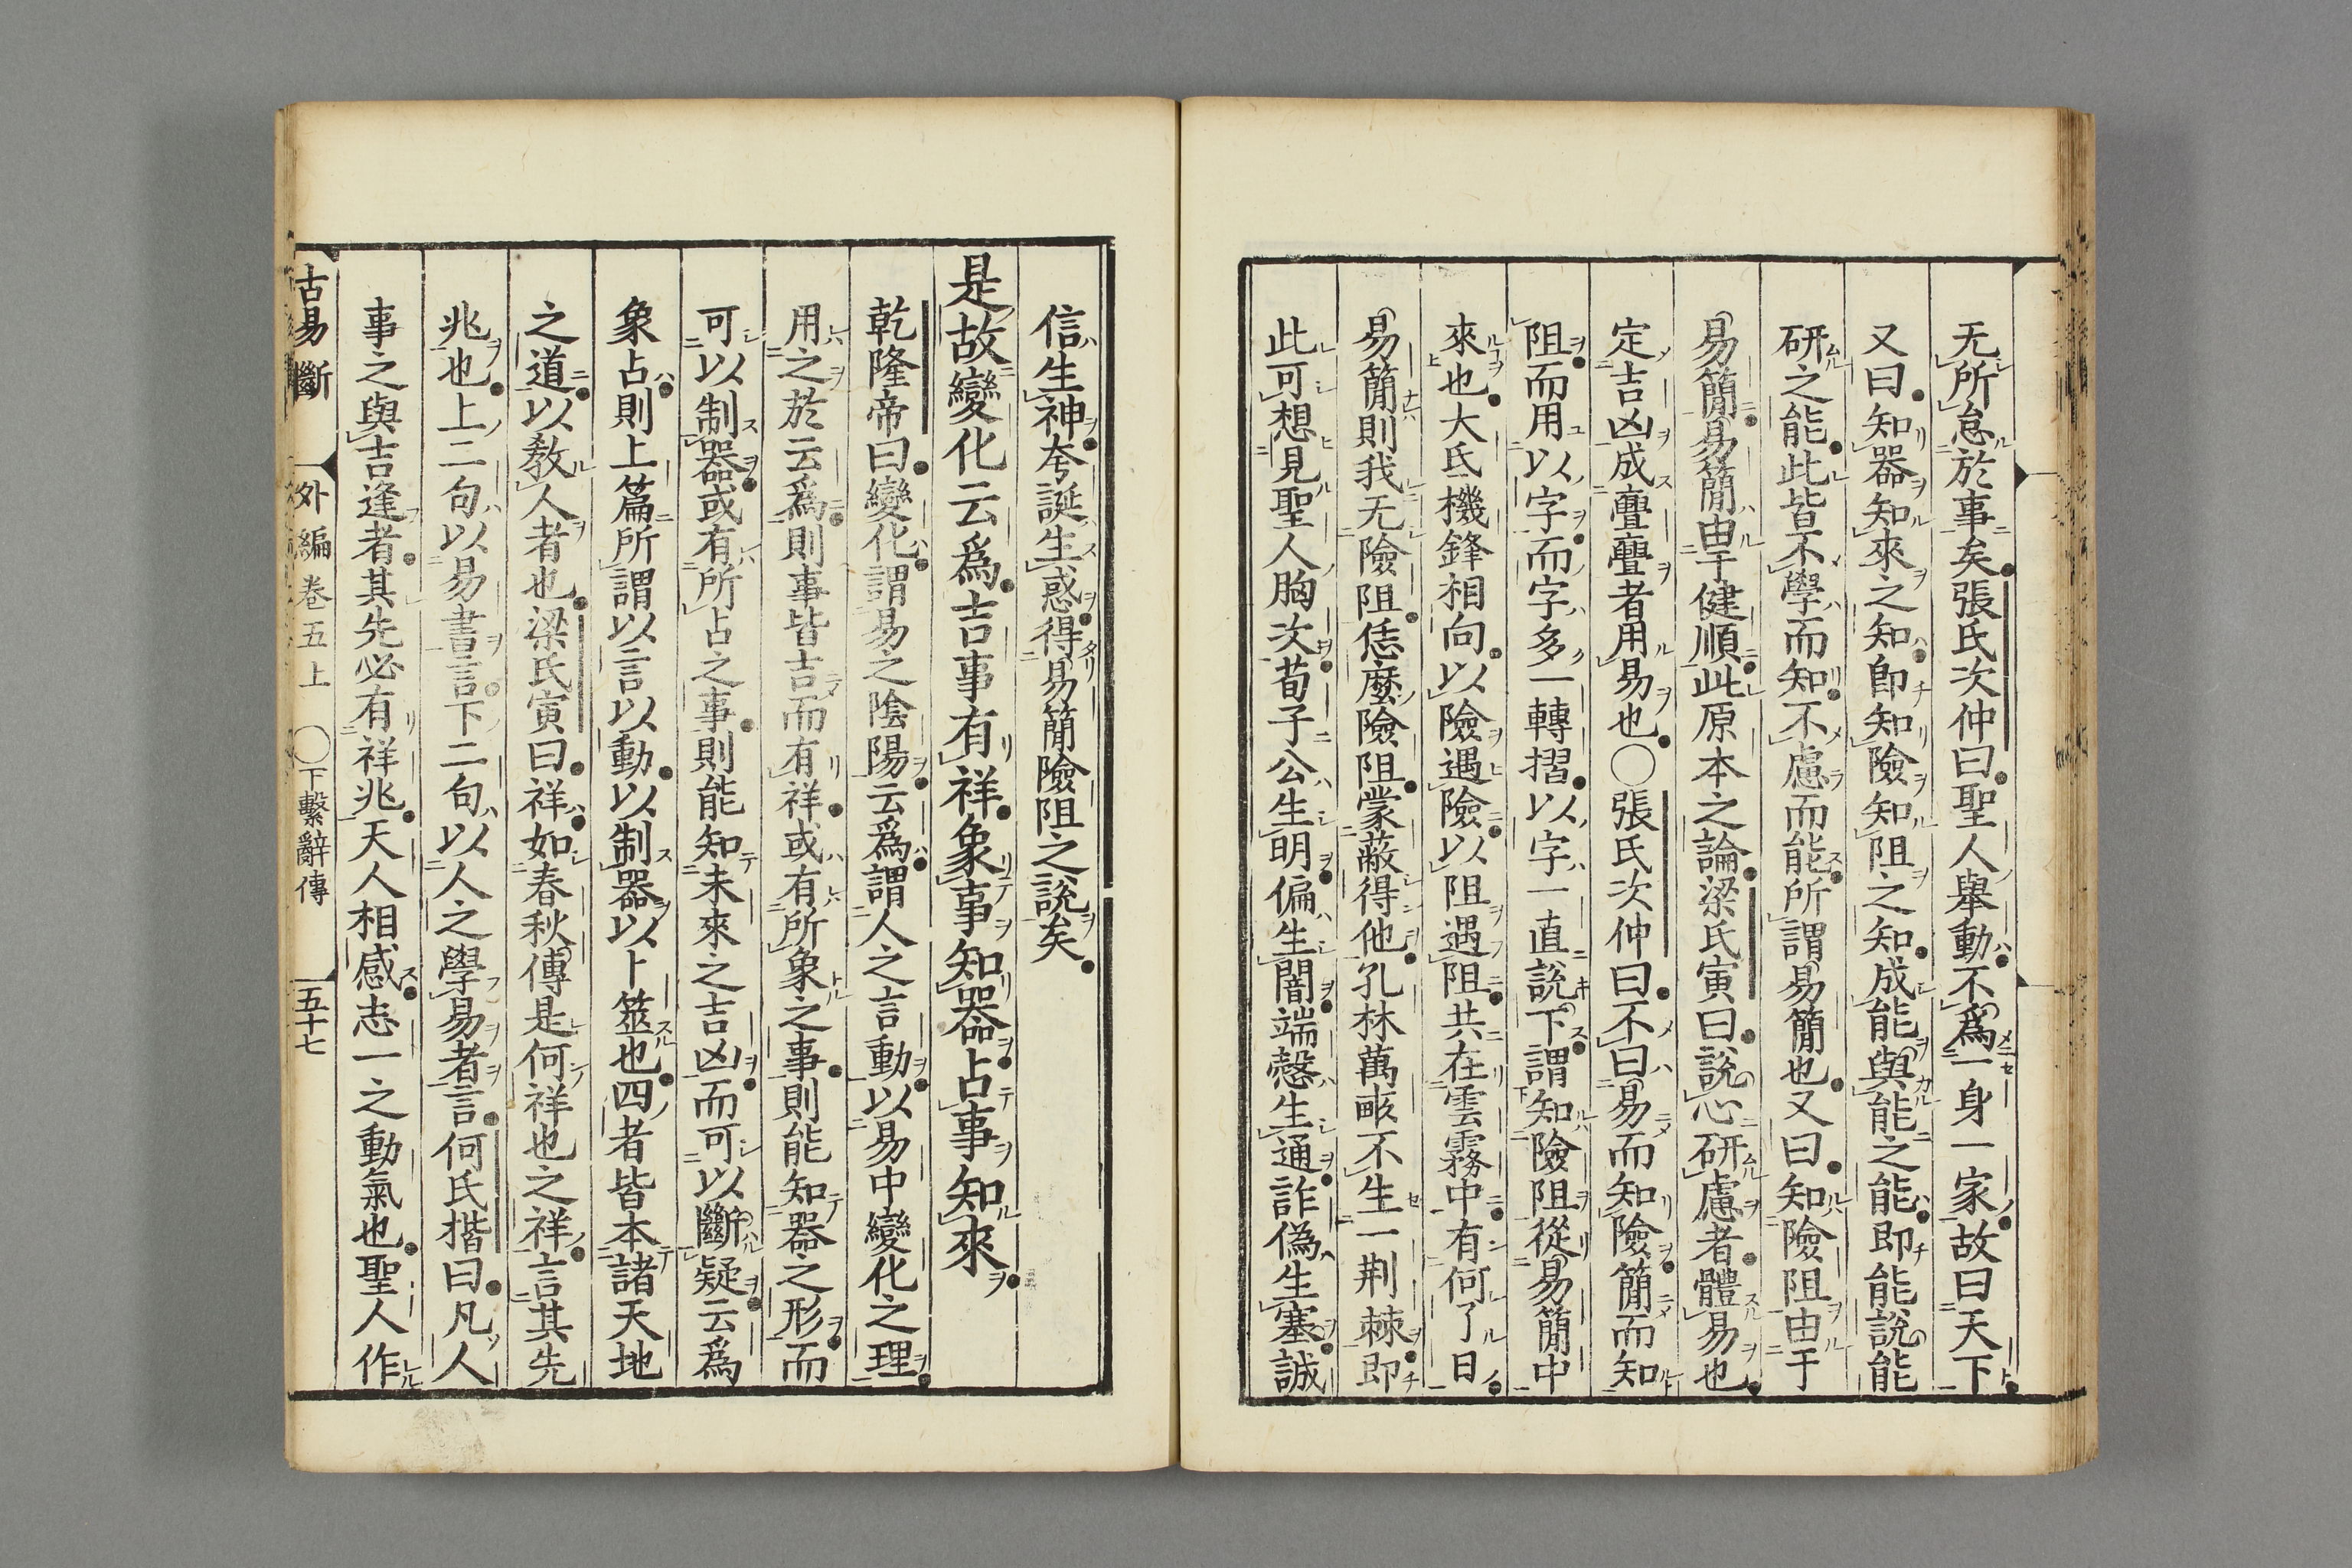 无所怠於事矣張氏次仲曰聖人舉動不爲一身一家故曰天下
又曰知器知來之知卽知險知阻之知成能與能之能即能說能
研之能此皆不學而知不慮而能所謂易簡也又曰知險阻由于
易簡易簡由于健順此原本之論梁氏寅曰說心研慮者體易也
定吉凶成亹亹者用易也○張氏次仲曰不曰易而知險簡而知
阻而用以字而字多一轉摺以字一直說下謂知險阻從易簡中
來也大氏機鋒相向以險遇險以阻遇阻共在雲霧中有何了日
易簡則我无險阻恁麼險阻蒙蔽得他孔林萬畝不生一荆棘即
此可想見聖人胸次荀子公生明偏生闇端愨生通詐僞生塞誠
信生神夸誕生惑得易簡險阻之說矣
是故變化云爲吉事有祥象事知器占事知來
乾隆帝曰變化謂易之陰陽云爲謂人之言動以易中變化之理
用之於云爲則事皆吉而有祥或有所象之事則能知器之形而
可以制器或有所占之事則能知未來之吉凶而可以斷疑云爲
象占則上篇所謂以言以動以制器以卜筮也四者皆本諸天地
之道以敎人者也梁氏寅曰祥如春秋傳是何祥也之祥言其先
兆也上二句以易書言下二句以人之學易者言何氏楷曰凡人
事之與吉逢者其先必有祥兆天人相感志一之動氣也聖人作
古易斷 外編卷五上 ○下繫辭傳 五十七